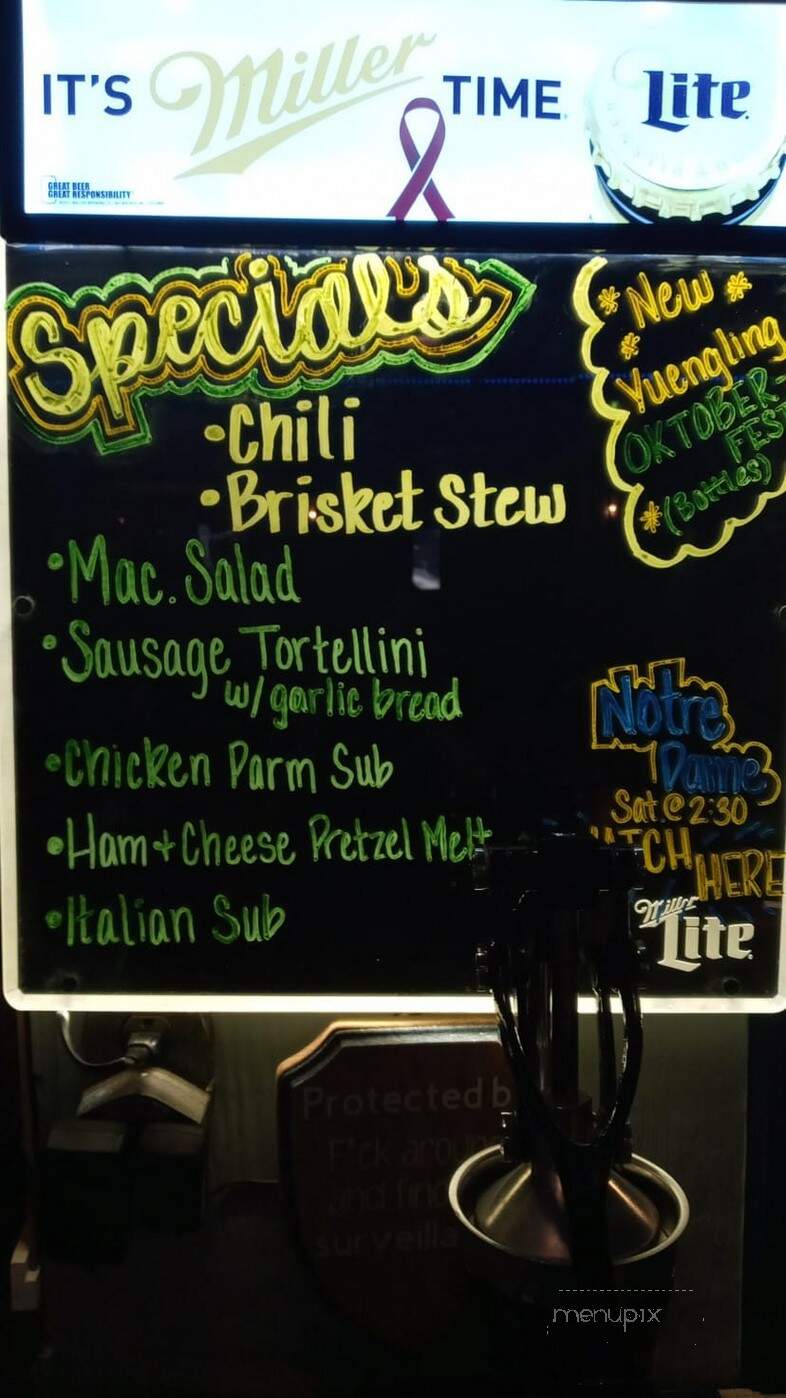 IT'S Miller TIME Lite
GREAT BEER
GREAT RESPONSIBILITY
Specials
•Chili
•Brisket Stew
•Mac. Salad
•Sausage Tortellini
w/garlic bread
•Chicken Parm Sub
•Ham+Cheese Pretzel Melt
•Italian Sub
* New *
* Yuengling
OKTOBER-
FEST
*(Bottles)
Notre
Dame
Sat.@2:30
HERE
Miller
Lite
Protected b
F*ck
and
menupix